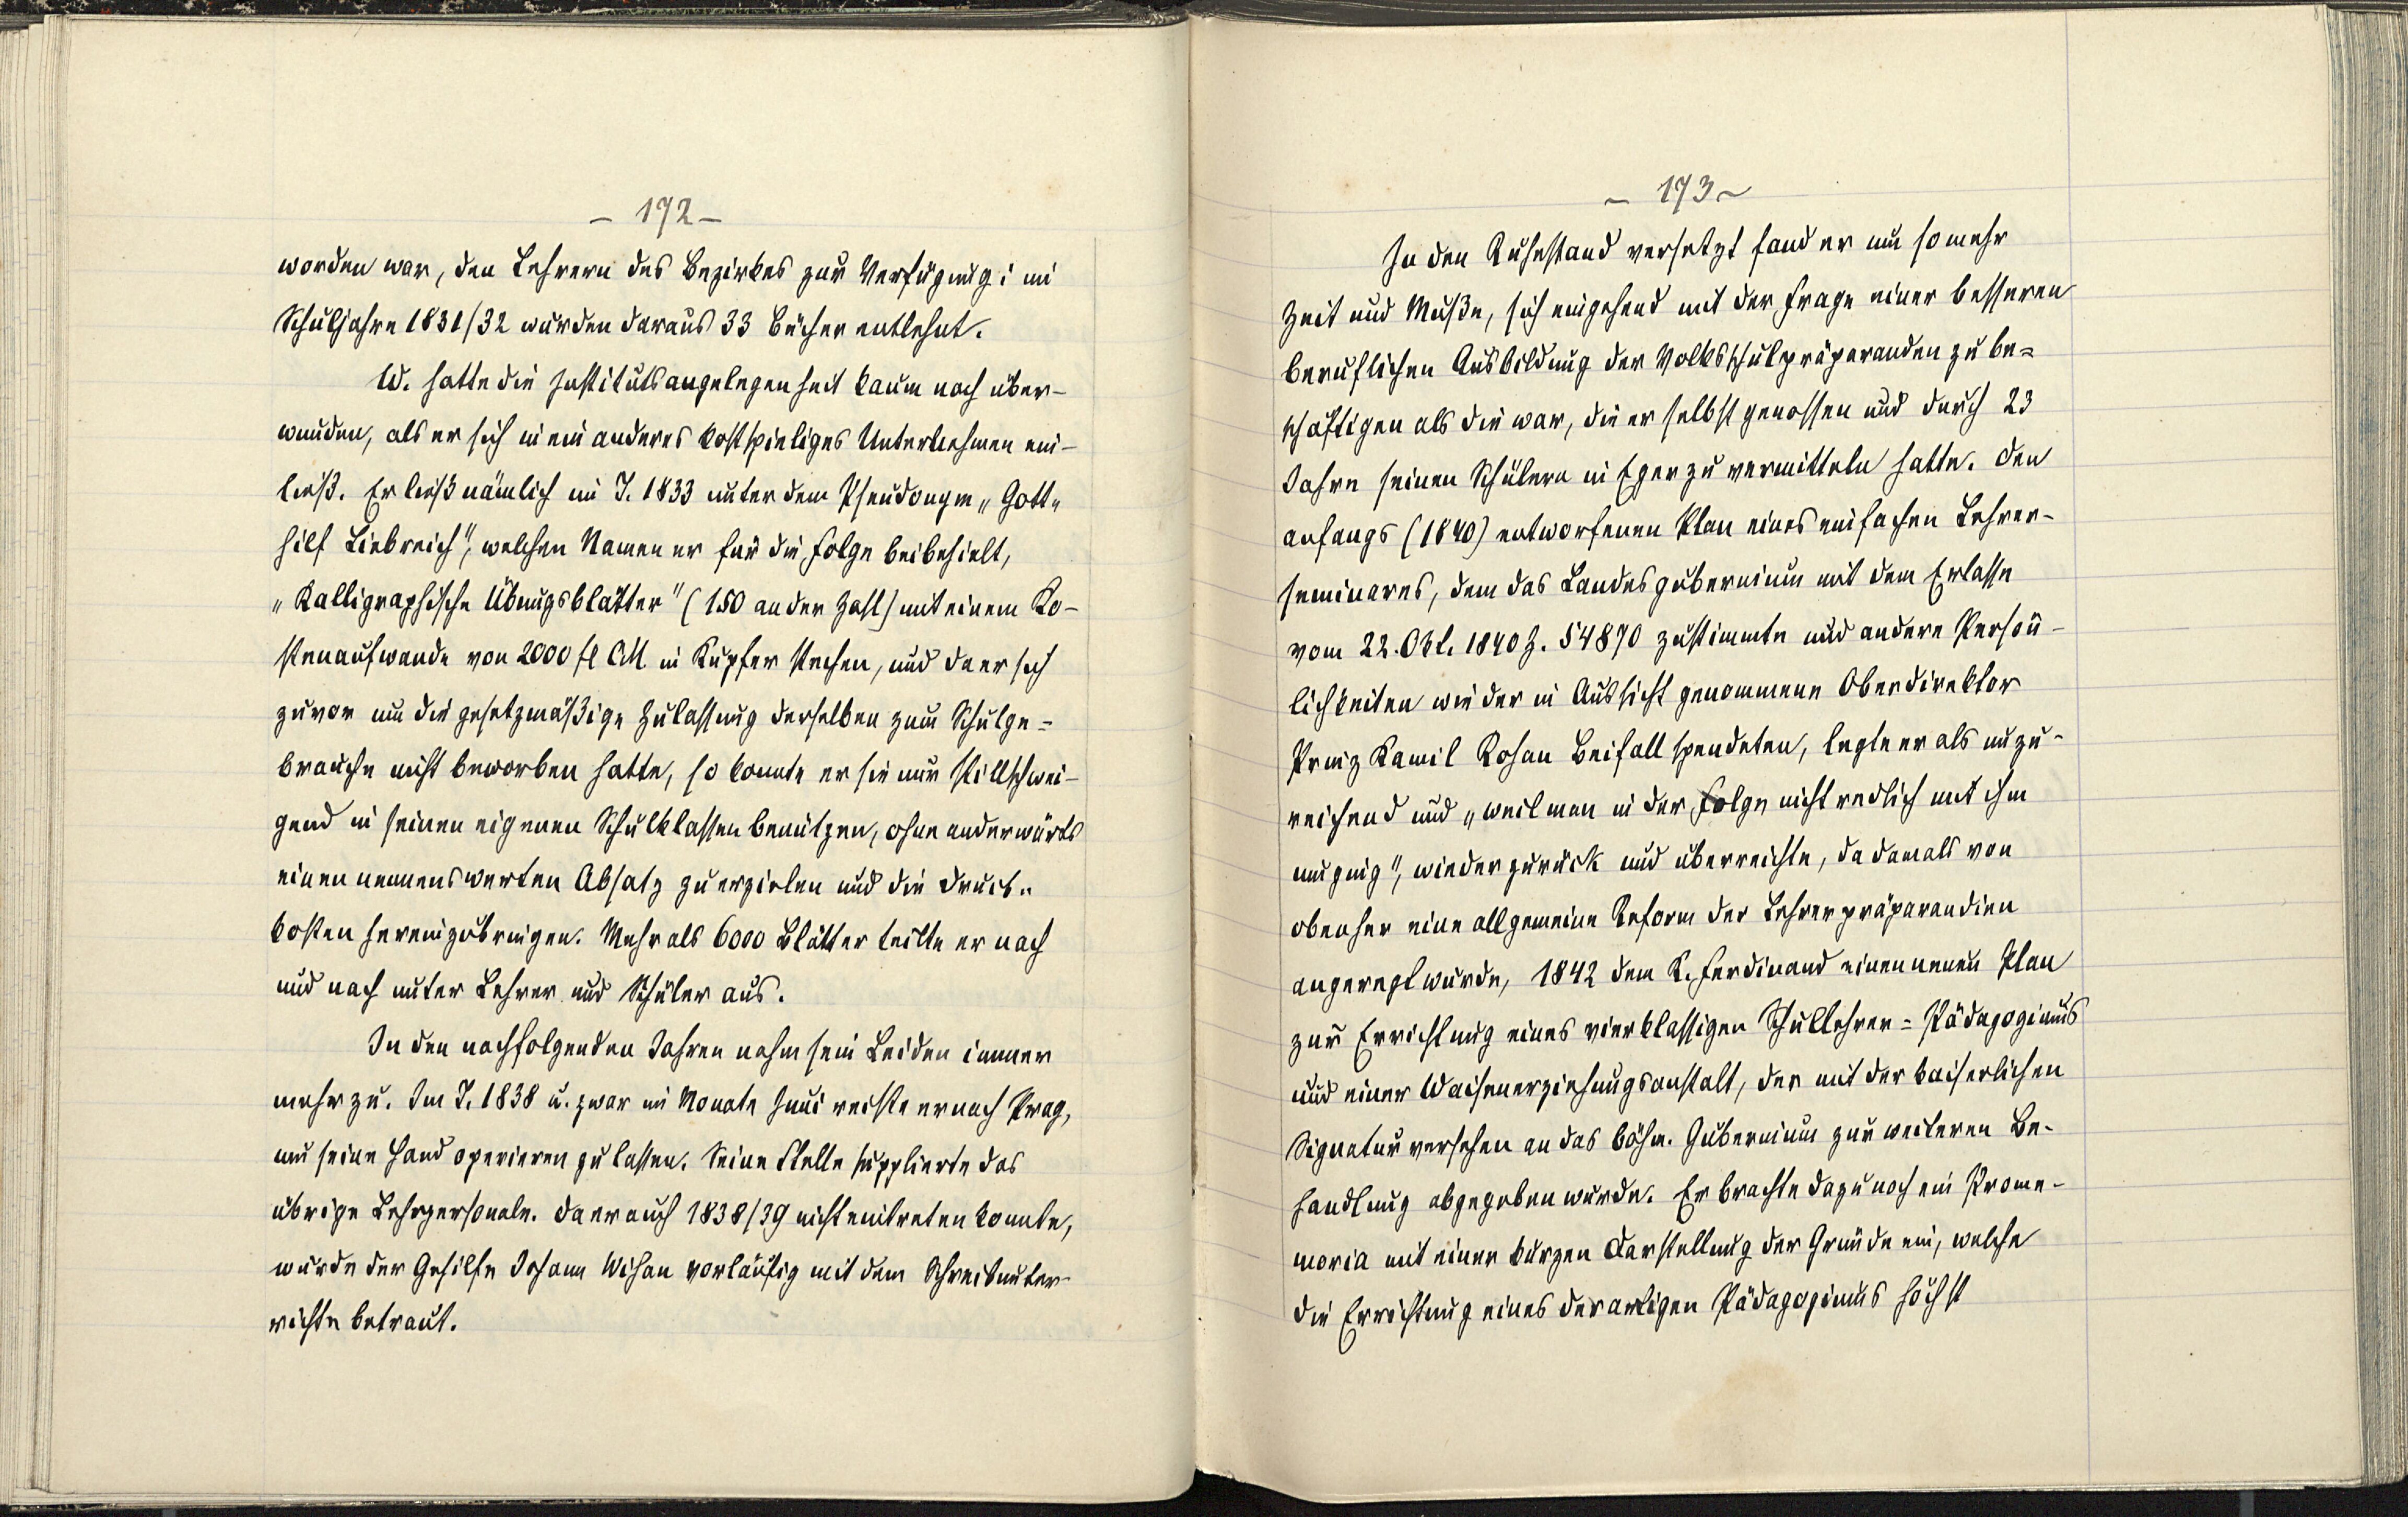 – 172 –
worden war, den Lehrern des Bezirkes zur Verfügung; im
Schuljahre 1831/32 wurden daraus 33 Bücher entlehnt.
W. hatte die Institutsangelegenheit kaum noch über-
wunden, als er sich in ein anderes kostspieliges Unternehmen ein-
ließ. Er ließ nämlich im J. 1833 unter dem Pseudonym „Gott-
hilf Liebreich", welchen Namen er für die Folge beibehielt,
„Kalligraphische Übungsblätter" (150 an der Zahl) mit einem Ko-
stenaufwande von 2000 fl CM in Kupfer stechen, und da er sich
zuvor um die gesetzmäßige Zulassung derselben zum Schulge-
brauche nicht beworben hatte, so konnte er sie nur stillschwei-
gend in seinen eigenen Schulklassen benützen, ohne anderwärts
einen nennenswerten Absatz zu erzielen und die Druck-
kosten hereinzubringen. Mehr als 6000 Blätter teilte er nach
und nach unter Lehrer und Schüler aus.
In den nachfolgenden Jahren nahm sein Leiden immer
mehr zu. Im J. 1838 u. zwar im Monate Juni reiste er nach Prag,
um seine Hand operieren zu lassen. Seine Stelle supplierte das
übrige Lehrpersonale. Da er auch 1838/39 nicht eintreten konnte,
wurde der Gehilfe Johann Wihan vorläufig mit dem Schreibunter-
richte betraut.
– 173 –
In den Ruhestand versetzt fand er um so mehr
Zeit und Muße, sich eingehend mit der Frage einer besseren
beruflichen Ausbildung der Volksschulpräparanden zu be-
schäftigen als die war, die er selbst genossen und durch 23
Jahre seinen Schülern in Eger zu vermitteln hatte. Den
anfangs (1840) entworfenen Plan eines einfachen Lehrer-
seminares, dem das Landesgubernium mit dem Erlasse
vom 22. Okt. 1840 Z. 54870 zustimmte und andere Persön-
lichkeiten wie der in Aussicht genommene Oberdirektor
Prinz Kamil Rohan Beifall spendeten, legte er als unzu-
reichend und „weil man in der Folge nicht redlich mit ihm
umging", wieder zurück und überreichte, da damals von
obenher eine allgemeine Reform der Lehrerpräparandien
angeregt wurde, 1842 dem K. Ferdinand einen neuen Plan
zur Errichtung eines vierklassigen Schullehrer-Pädagogiums
und einer Waisenerziehungsanstalt, der mit der kaiserlichen
Signatur versehen an das böhm. Gubernium zur weiteren Be-
handlung abgegeben wurde. Er brachte dazu noch ein Prome-
moria mit einer kurzen Darstellung der Gründe ein, welche
die Errichtung eines derartigen Pädagogiums höchst